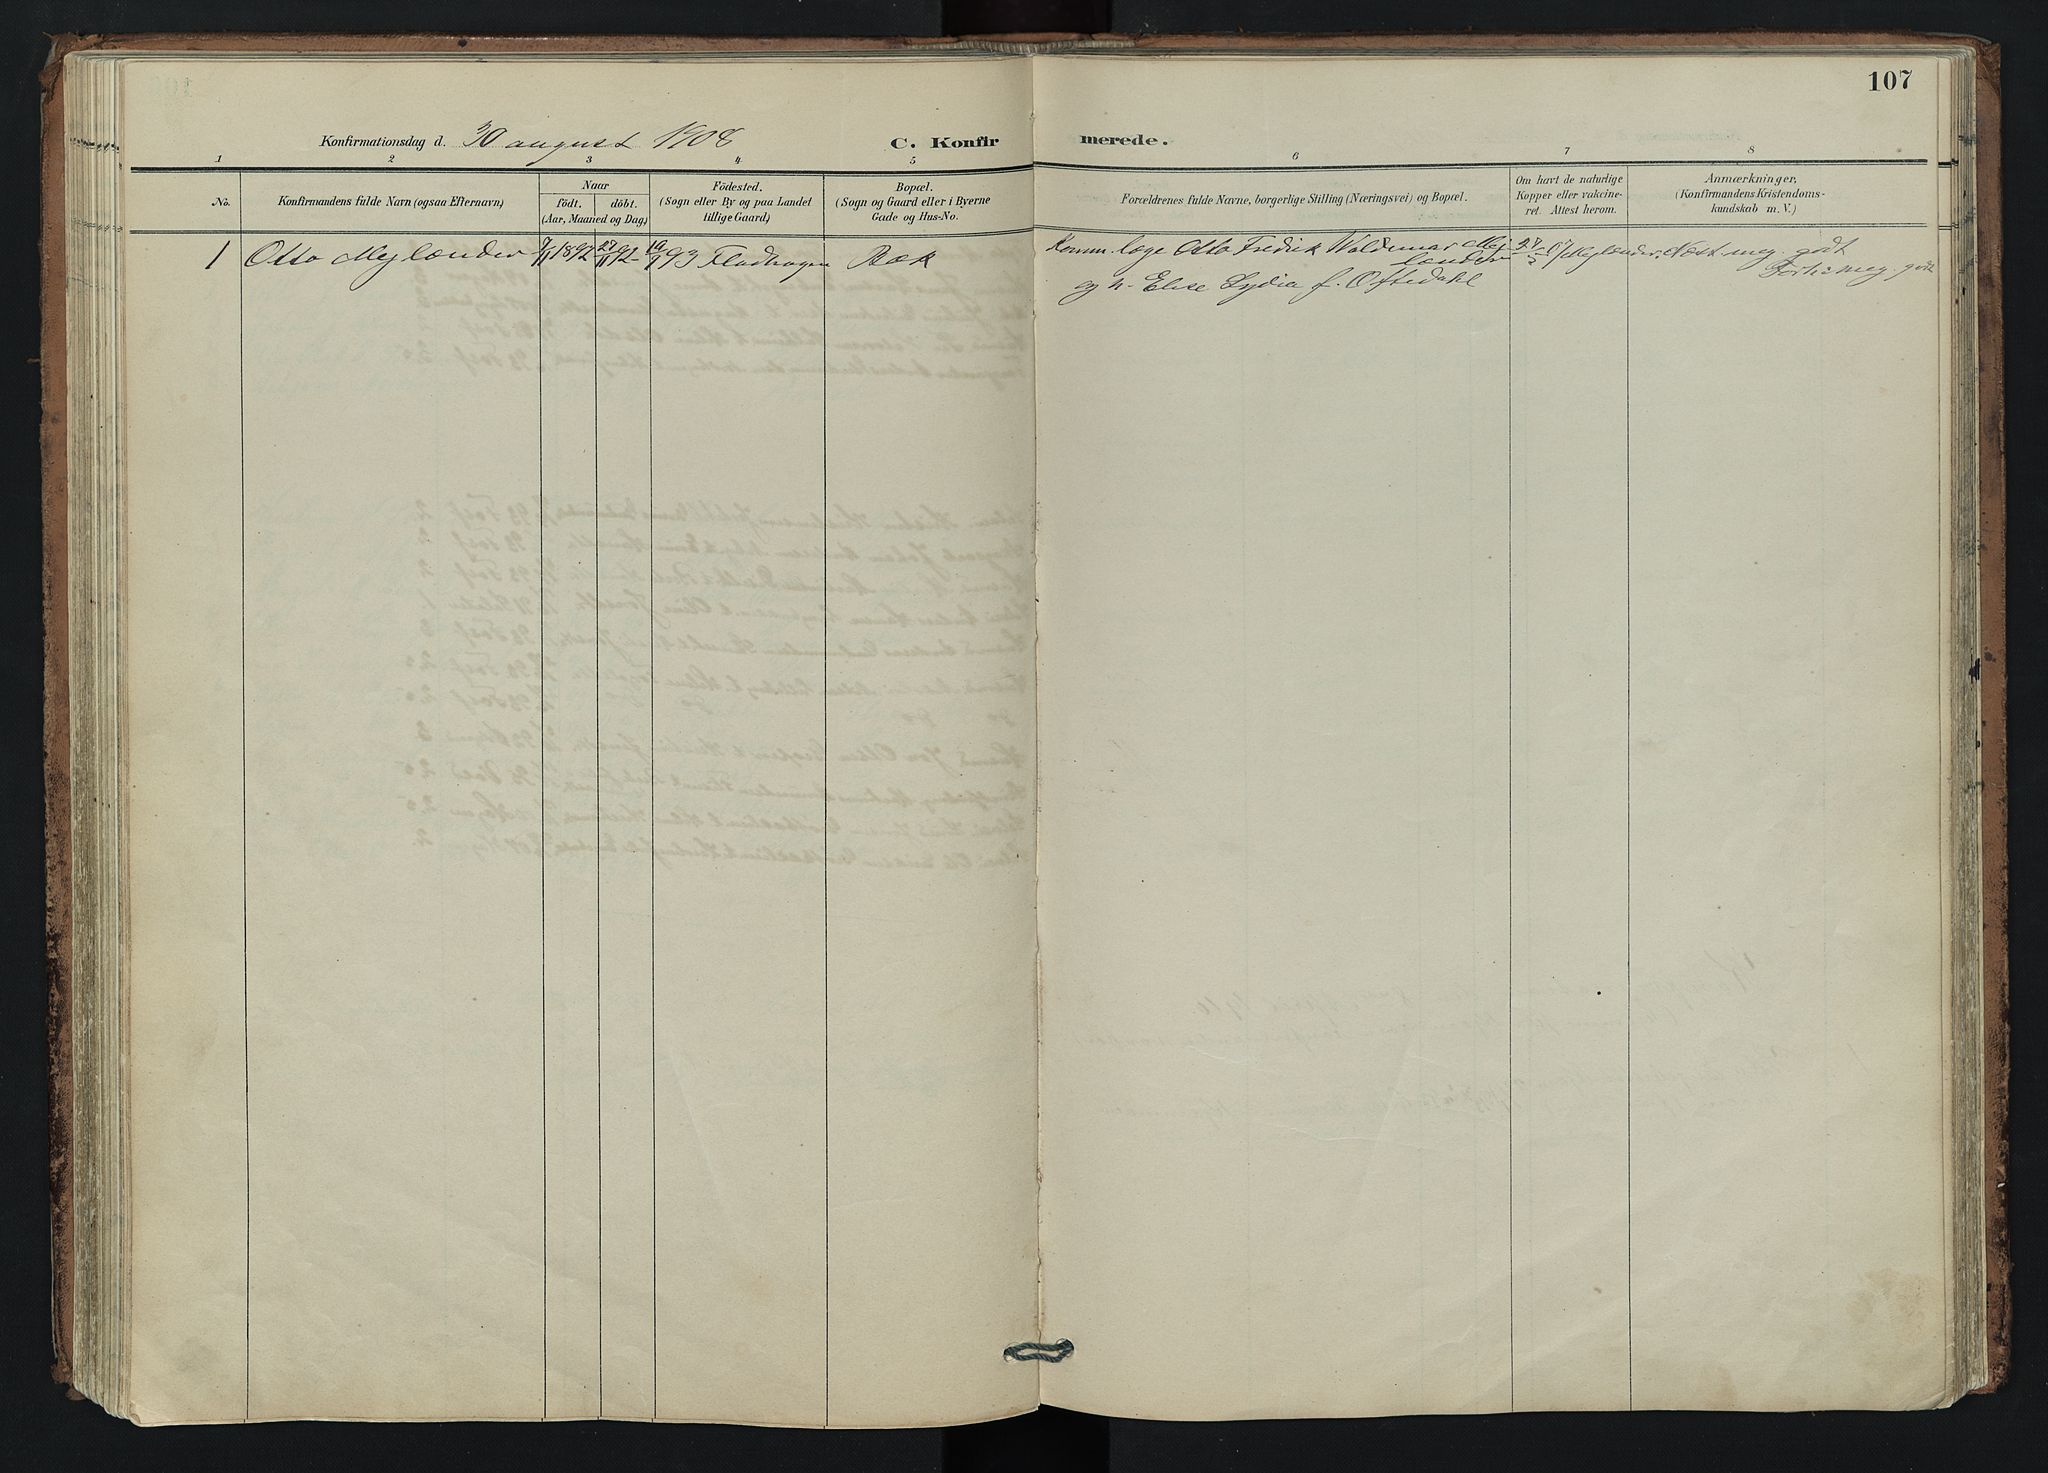 107
Konfirmationsdag d. 30 august 1908
C. Konfirmerede.
1 2 3 4 5 6 7 8
No.
Konfirmandens fulde Navn (ogsaa Efternavn)
Naar
födt. döbt.
(Aar, Maaned og Dag)
Födested.
(Sogn eller By og paa Landet
tillige Gaard)
Bopæl.
(Sogn og Gaard eller i Byerne
Gade og Hus-No.
Forældrenes fulde Navne, borgerlige Stilling (Næringsvei) og Bopæl.
Om havt de naturlige
Kopper eller vakcine-
ret. Attest herom.
Anmærkninger,
(Konfirmandens Kristendoms-
kundskab m. V.)
1 Otto Mejlænder 7/11 1892 27/11 92 - 19/9 93 Fladhagen Bæk
Komm. læge Otto Fredrik Waldemar Mej
lænder
og h. Elise Lydia f. Oftedahl
Mejlænder. Næst meg. godt
meg. godt